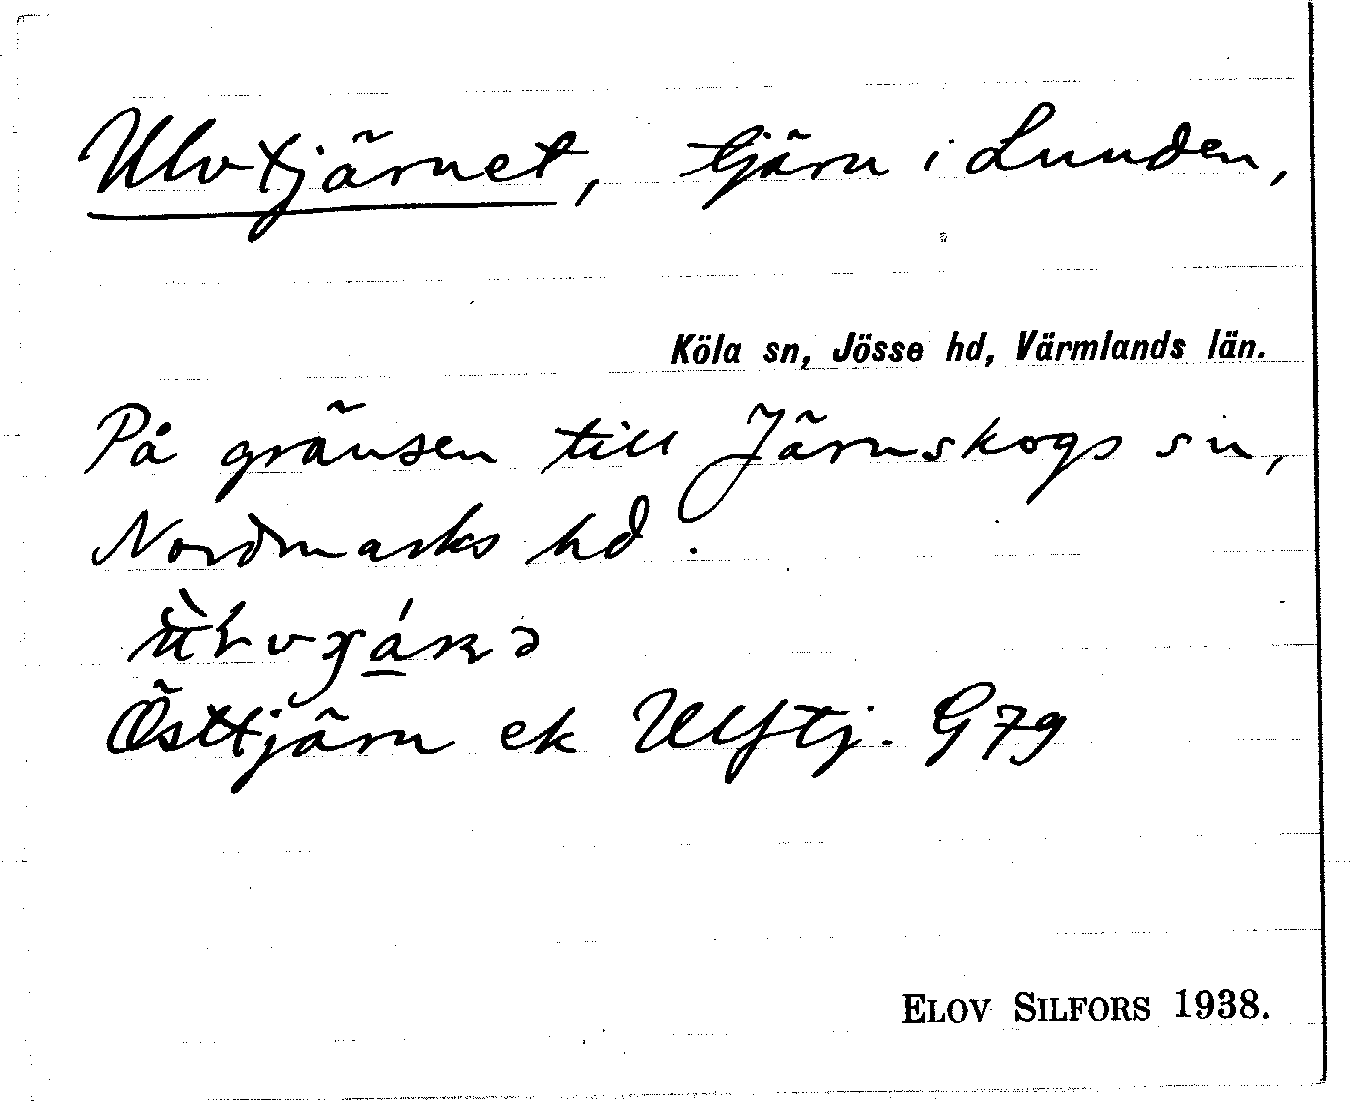 Ulvtjärnet, tjärn i Lunden,
Köla sn, Jösse hd, Värmlands län.
På gränsen till Järnskogs sn,
Nordmarks hd.
Östtjärn ek Ulftj. G79
ELOV SILFORS 1938.